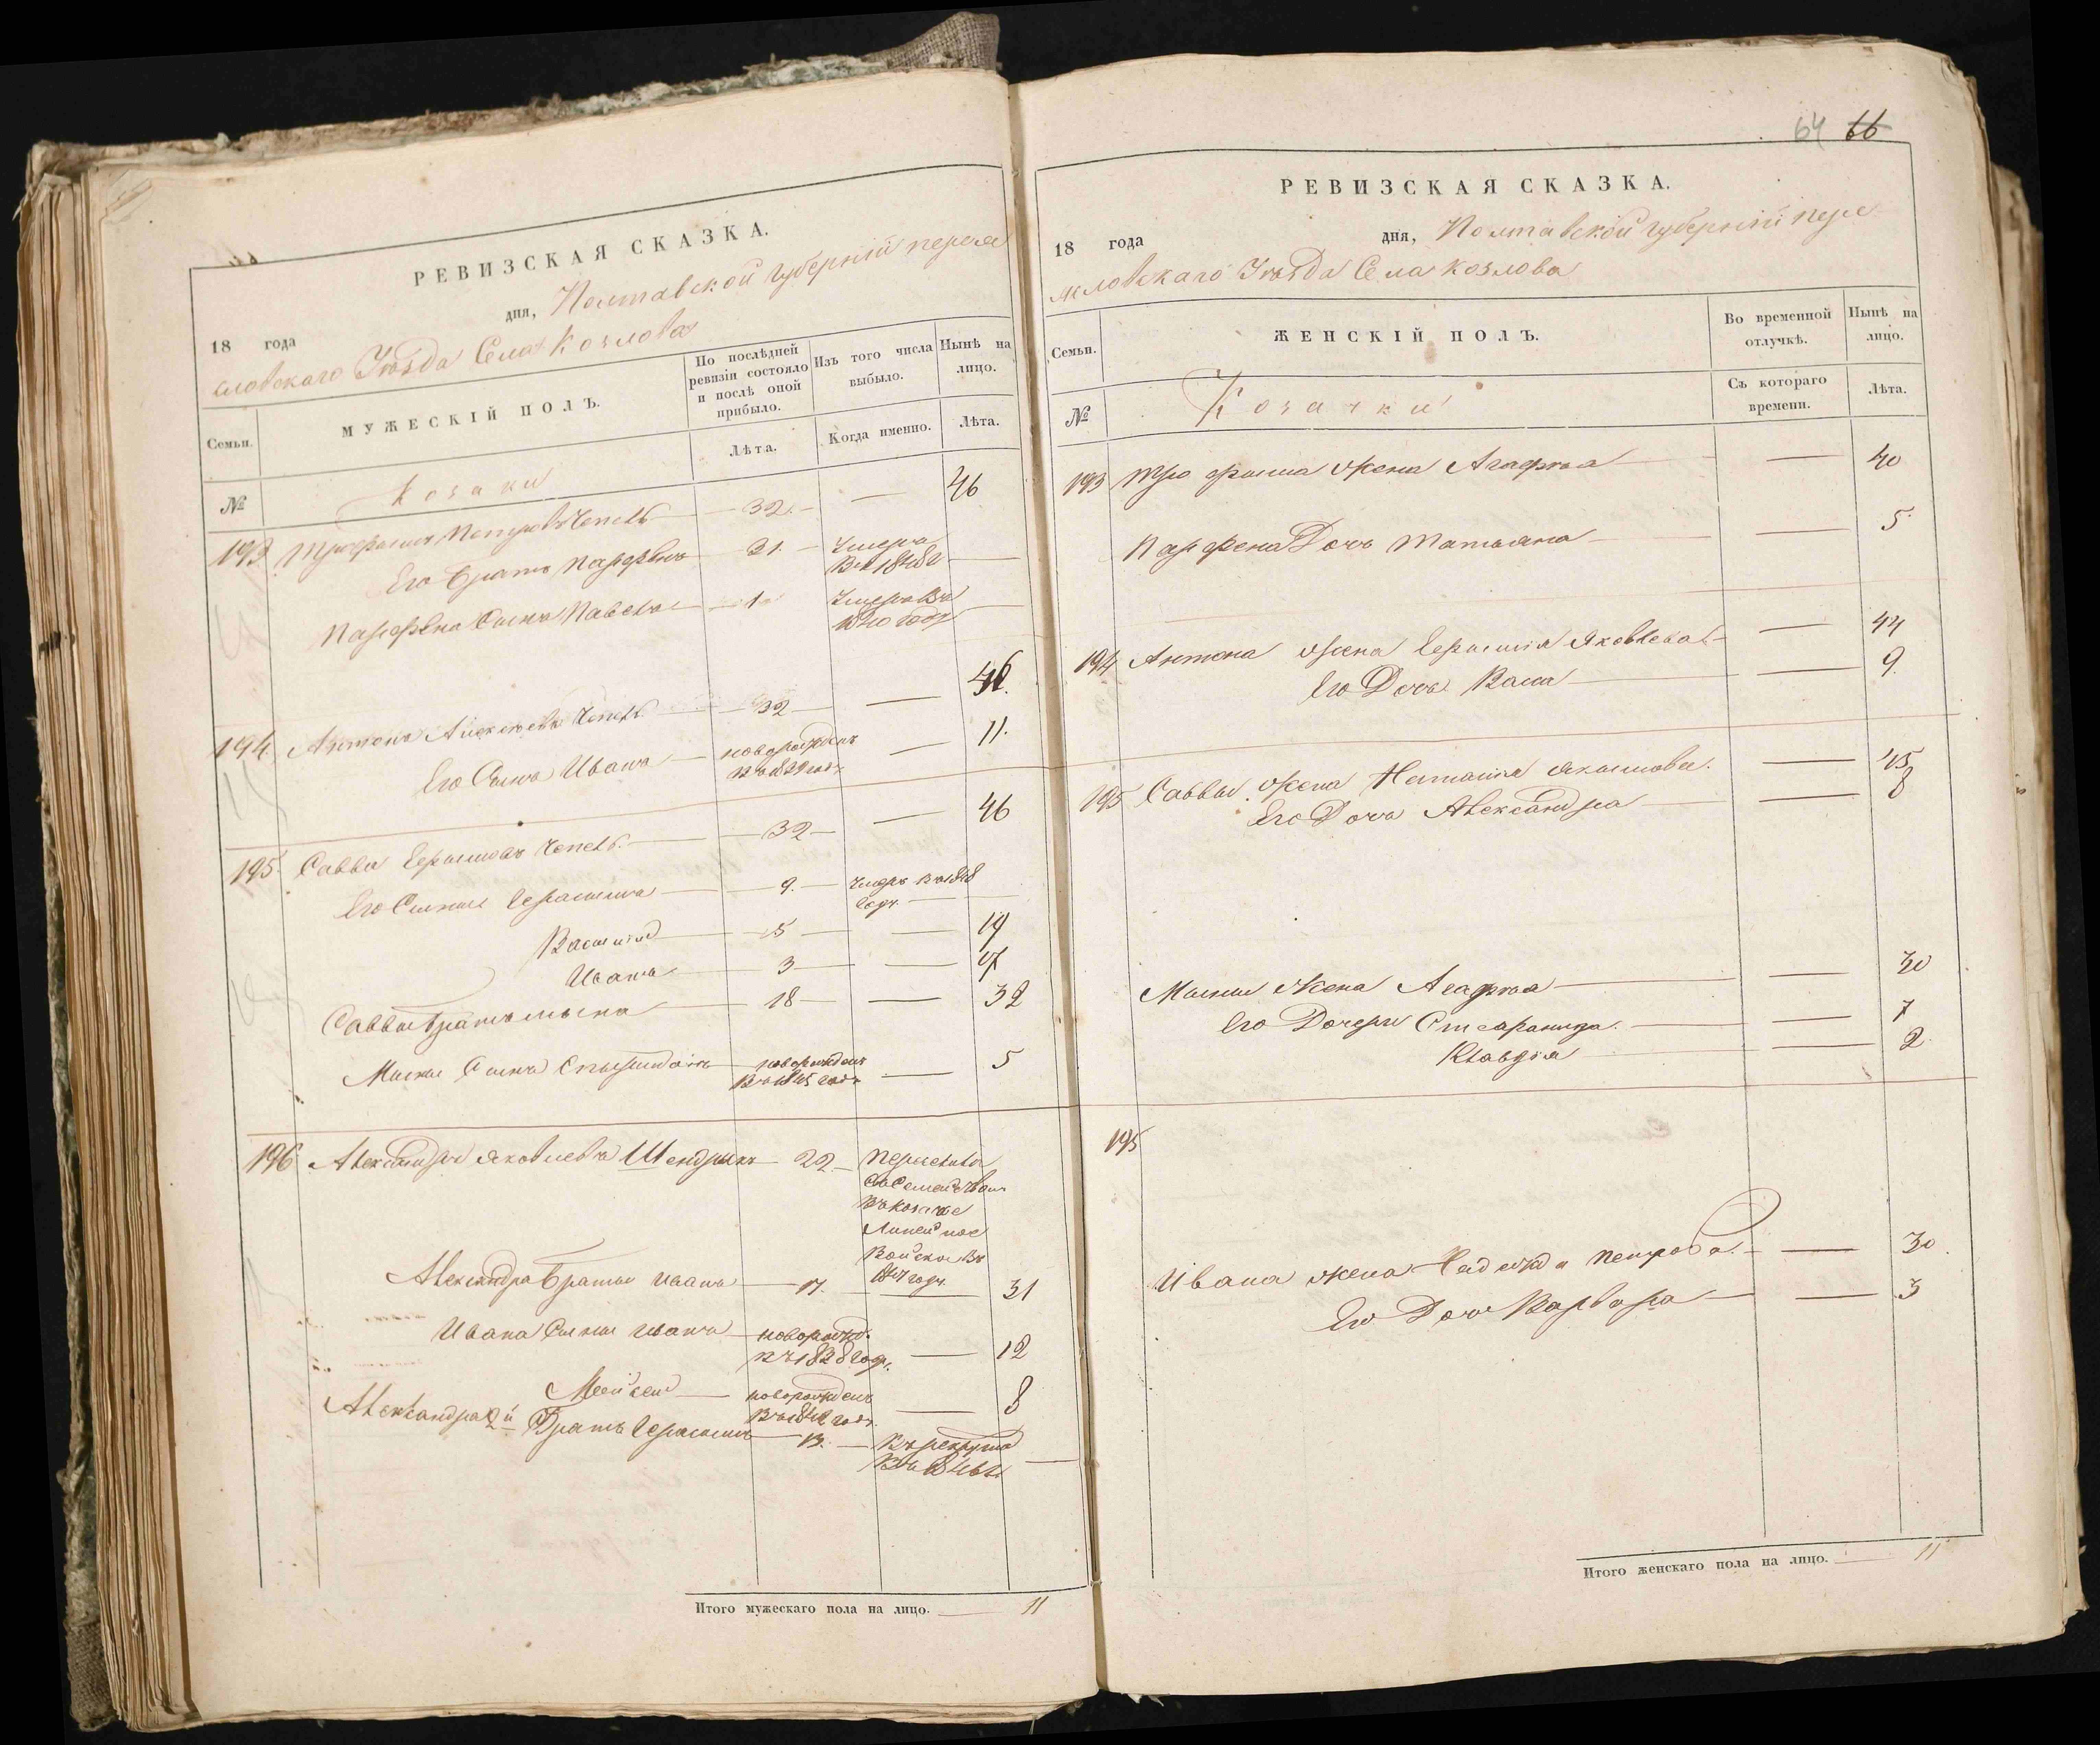 РЕВИЗСКАЯ СКАЗКА.
18 года дня, Полтавской Губерніи перея
словскаго Уѣзда Села Козлова
Семьи.
МУЖЕСКІЙ ПОЛЪ.
По послѣдней ревизіи состояло и послѣ оной прибыло.
Изъ того числа выбыло.
Нынѣ на лицо.
№
Лѣта.
Когда именно.
Лѣта.
Козаки
193 Трофимъ Петровъ Чепель 32. 46
Его Братъ Парфенъ 21. Умеръ
въ 1848 г
Парфена Сынъ Павелъ 1 Умеръ въ
1840 году
194 Антонъ Алексѣевъ Чепель 32 46.
Его Сынъ Иванъ новорожденъ 11.
195 Савва Герасимовъ Чепель 32 46
Его Сыны Герасимъ 9. Умеръ въ 1848
году
Василій 5 19
Иванъ 3 17
Саввы Братъ Мына 18 32
Мины Сынъ Спиридонъ новорожденъ 5
въ 1845 году
196 Александръ Яковлевъ Шендрикъ 22 перечисленъ
въ козачье
Линейное
Войско въ
году
Александра Братья Иванъ 17. 31
Ивана Сыны Иванъ новорожд. 12
въ 1838 году
Мойсей новорожденъ 8
въ 1842 году
Александра 2й Братъ Герасимъ 13. въ рекруты
въ 1846 г
Итого мужескаго пола на лицо. 11
64 66
РЕВИЗСКАЯ СКАЗКА.
18 года дня, Полтавской Губерніи пере
яславскаго Уѣзда Села Козлова
Семьи.
ЖЕНСКІЙ ПОЛЪ.
Во временной отлучкѣ.
Нынѣ на лицо.
№
Съ котораго времени.
Лѣта.
Козачки
193 Трофима жена Агафья 40
Парфена Дочь Татьяна 5
194 Антона жена Яковлева 44
Его Дочь 9
195 Саввы жена Наталія Акимова 45
Его Дочь Александра 8
Мины жена Агафья 30
Его Дочери 7
Клавдія 2
195
Ивана жена Надежда Петрова 30
Его Дочь Варвара 3
Итого женскаго пола на лицо. 11